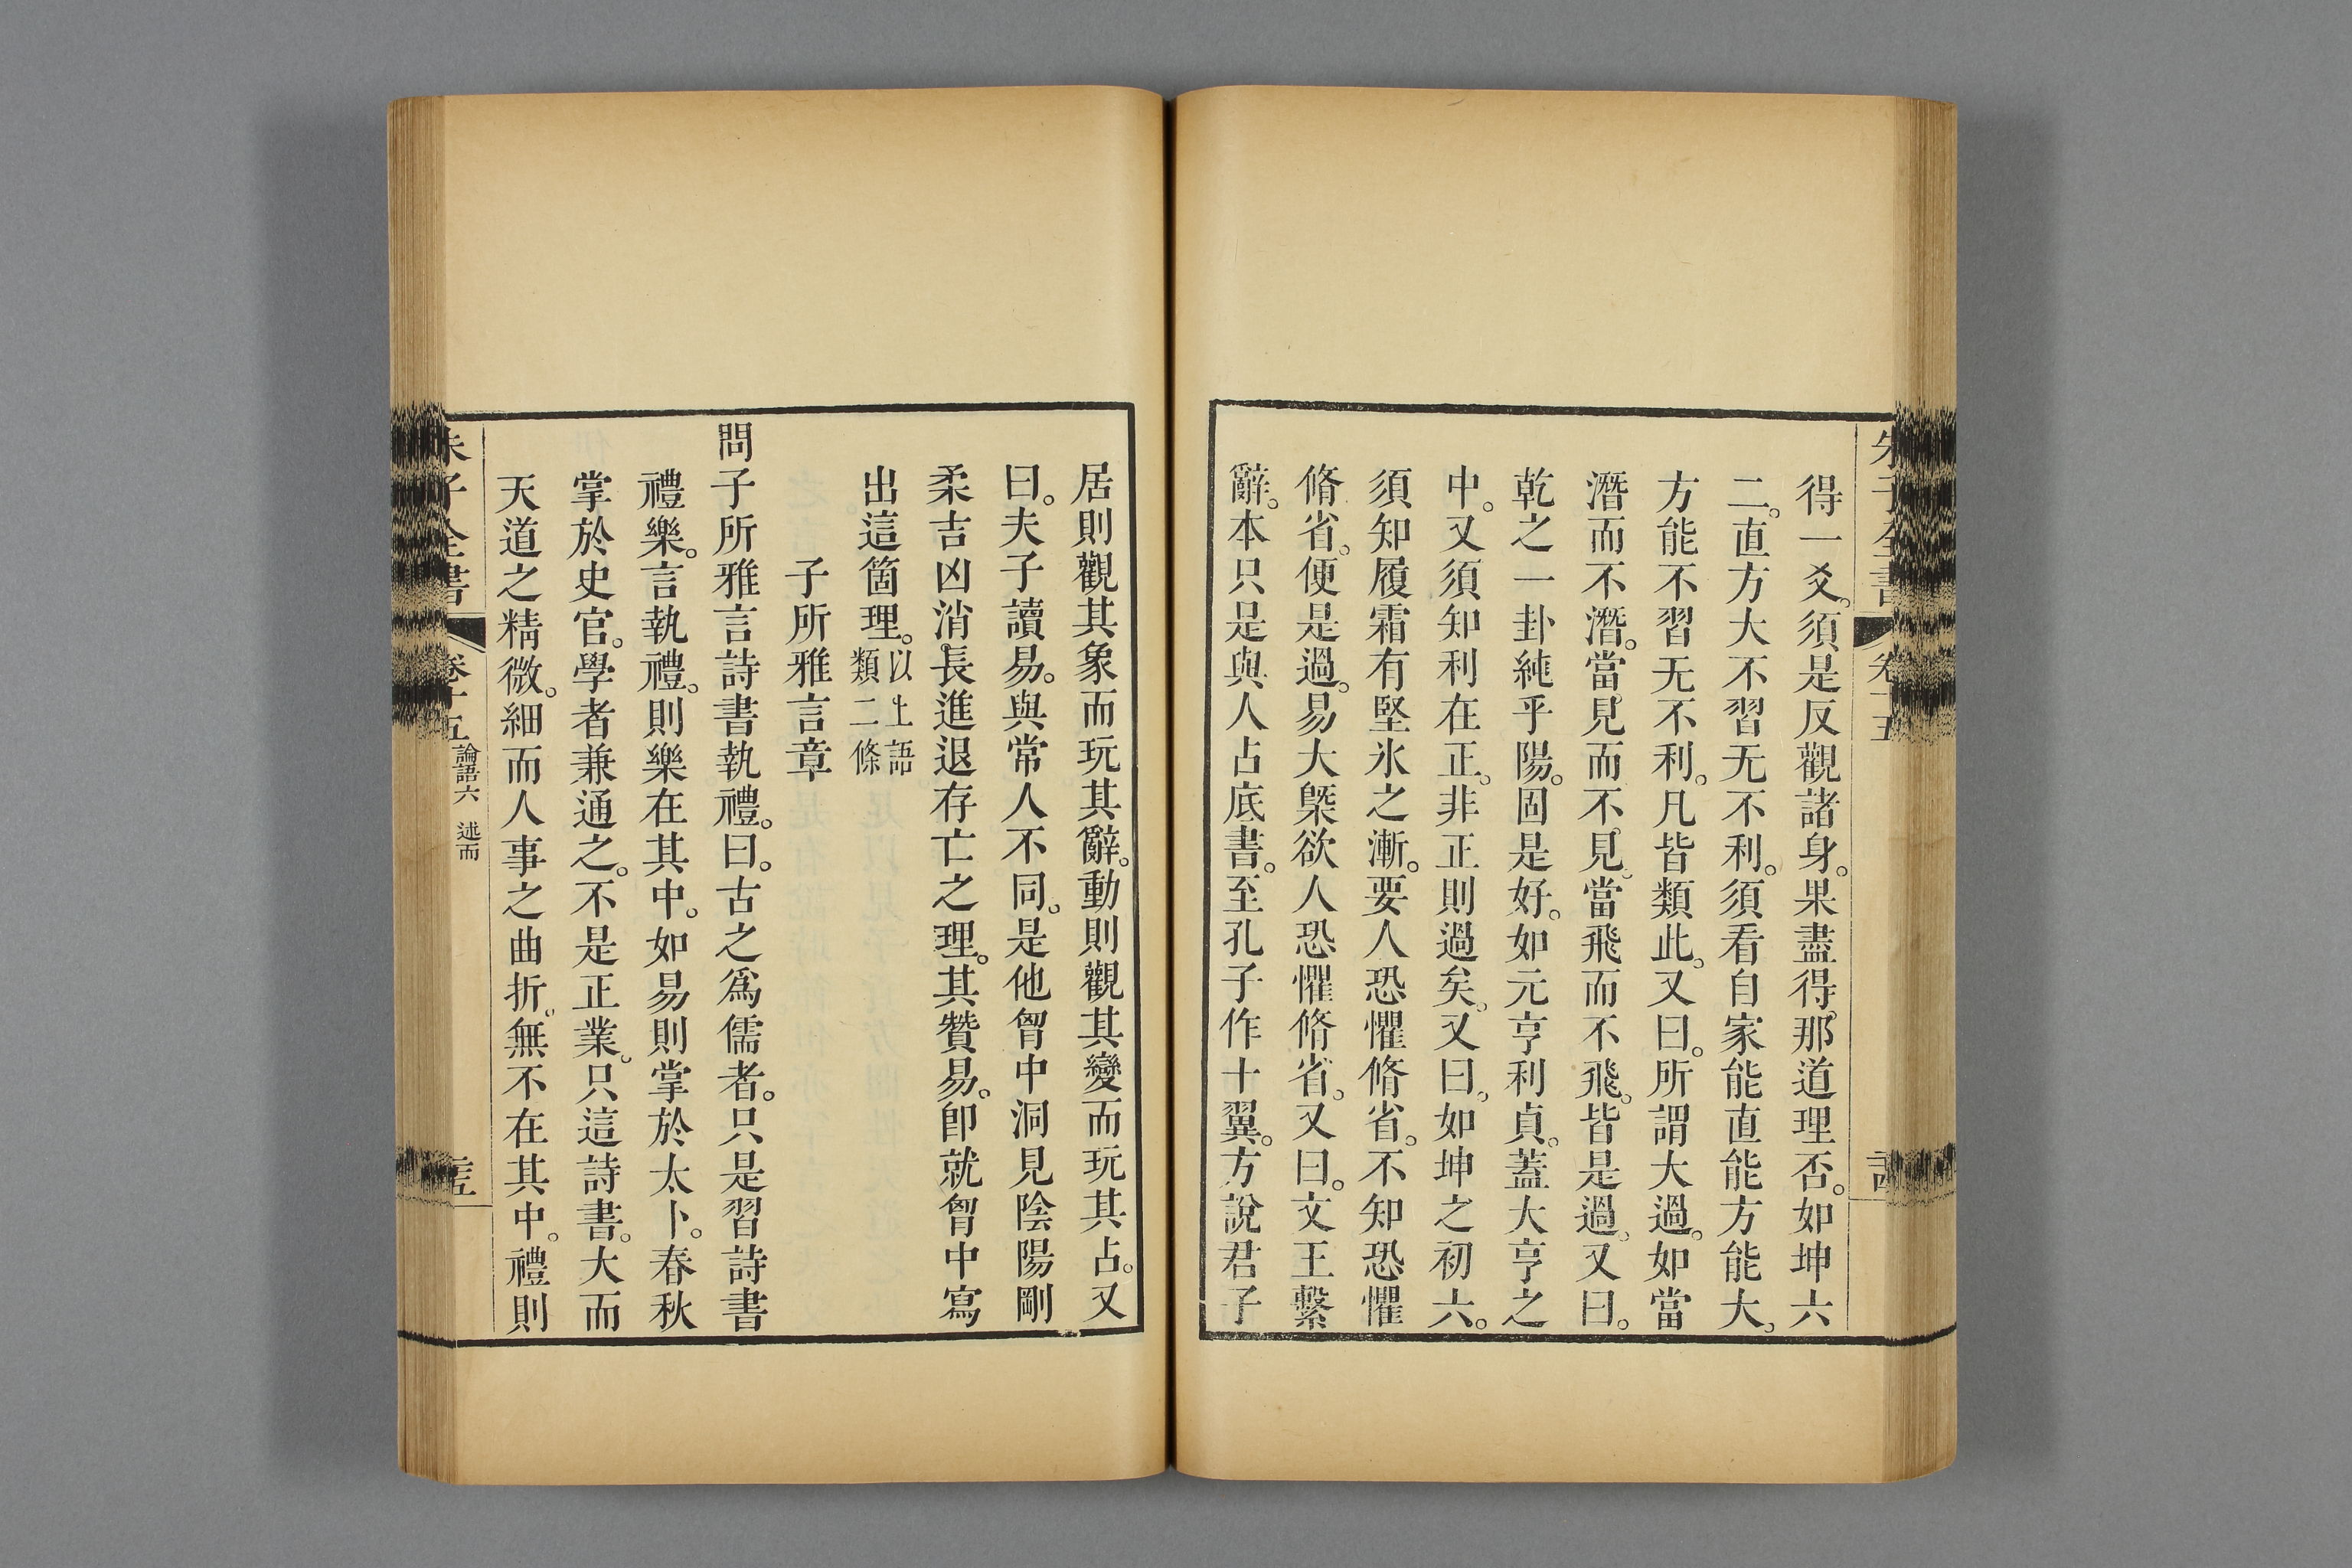 朱子全書 卷十五
得一爻。須是反觀諸身。果盡得那道理否。如坤六
二。直方大不習无不利。須看自家能直能方能大。
方能不習无不利。凡皆類此。又曰。所謂大過。如當
潛而不潛。當見而不見。當飛而不飛。皆是過。又曰。
乾之一卦純乎陽。固是好。如元亨利貞。蓋大亨之
中。又須知利在正。非正則過矣。又曰。如坤之初六。
須知履霜有堅氷之漸。要人恐懼脩省。不知恐懼
脩省。便是過。易大槩欲人恐懼脩省。又曰。文王繫
辭。本只是與人占底書。至孔子作十翼。方說君子
居則觀其象而玩其辭。動則觀其變而玩其占。又
曰。夫子讀易。與常人不同。是他胷中洞見陰陽剛
柔吉凶消長進退存亡之理。其贊易。卽就胷中寫
出這箇理。以上語類二條
子所雅言章
問子所雅言詩書執禮。曰。古之爲儒者。只是習詩書
禮樂。言執禮。則樂在其中。如易則掌於太卜。春秋
掌於史官。學者兼通之。不是正業。只這詩書。大而
天道之精微。細而人事之曲折。無不在其中。禮則
朱子全書 卷十五 論語六 述而